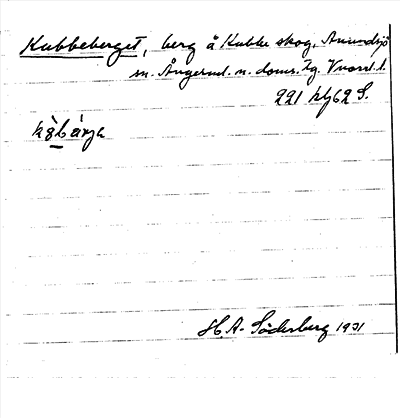 Kubbeberget, berg å Kubbe skog, Anundsjö
sn. Ångerml. n. doms. tg. Vnorrl. l.
221 kfj 62 S.
H. A. Söderberg 1931